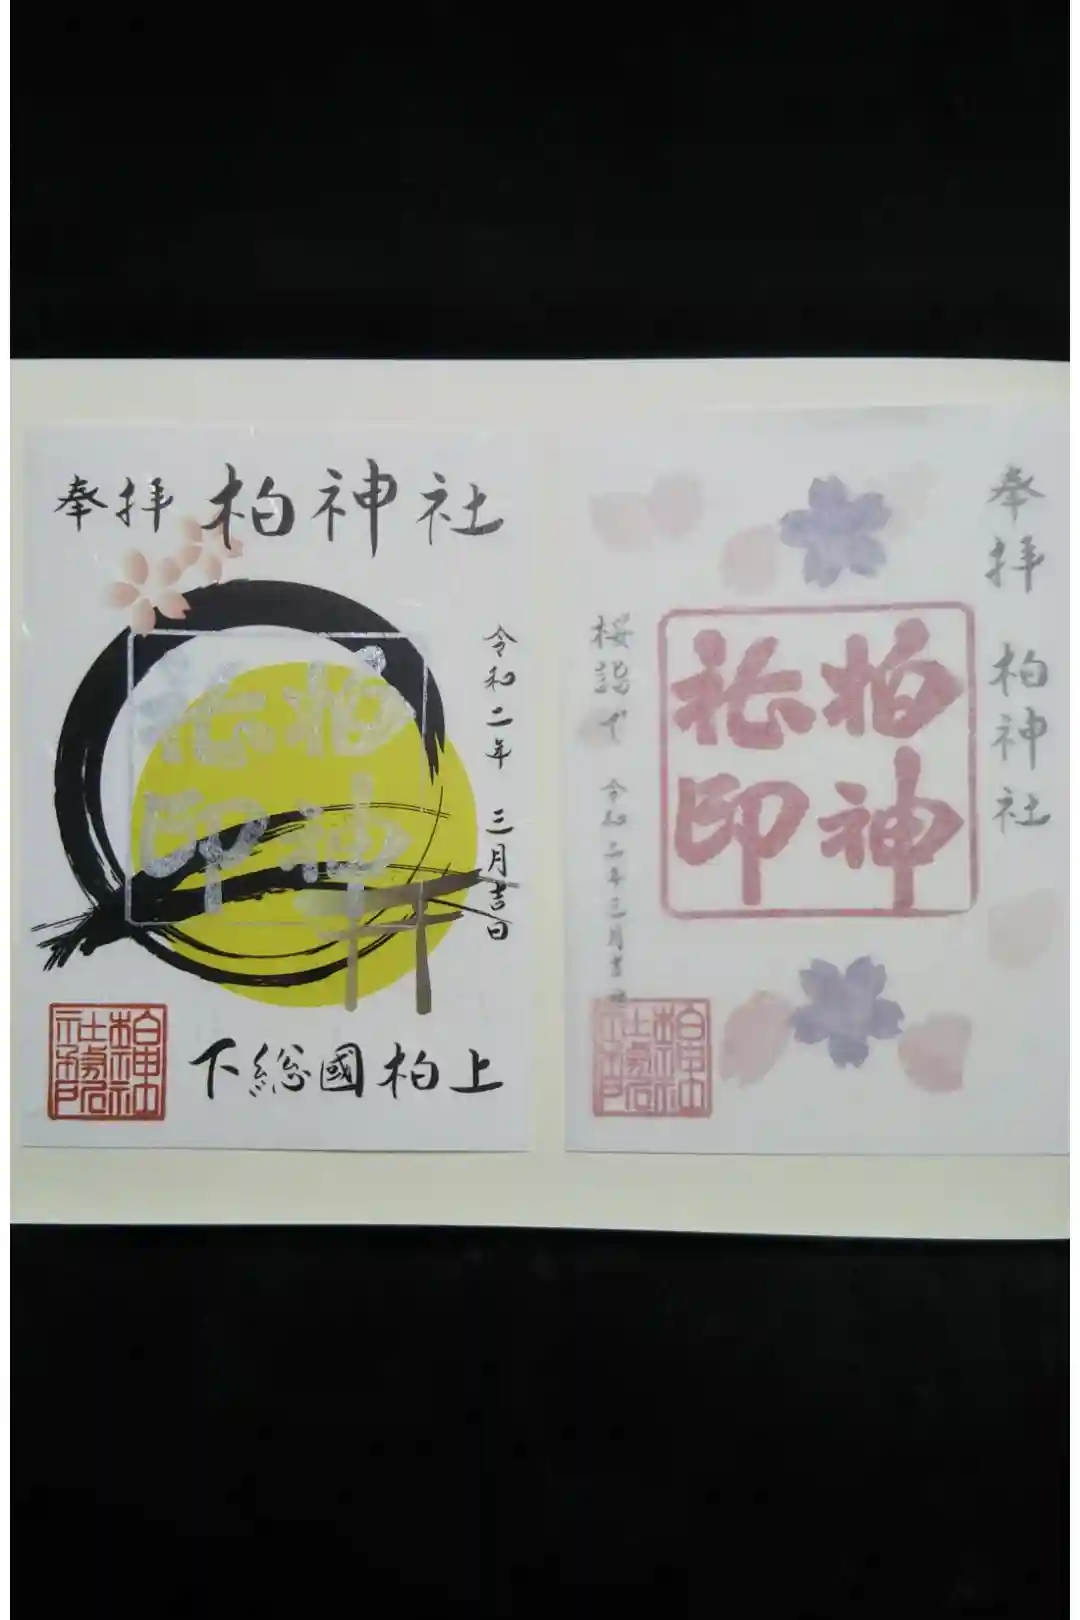 奉拝 柏神社
令和二年 三月吉日
柏神
社印
柏神社
社務所
下総國柏上
奉拝 柏神社
柏神
社印
桜詣で 令和二年三月吉日
柏神社
社務所